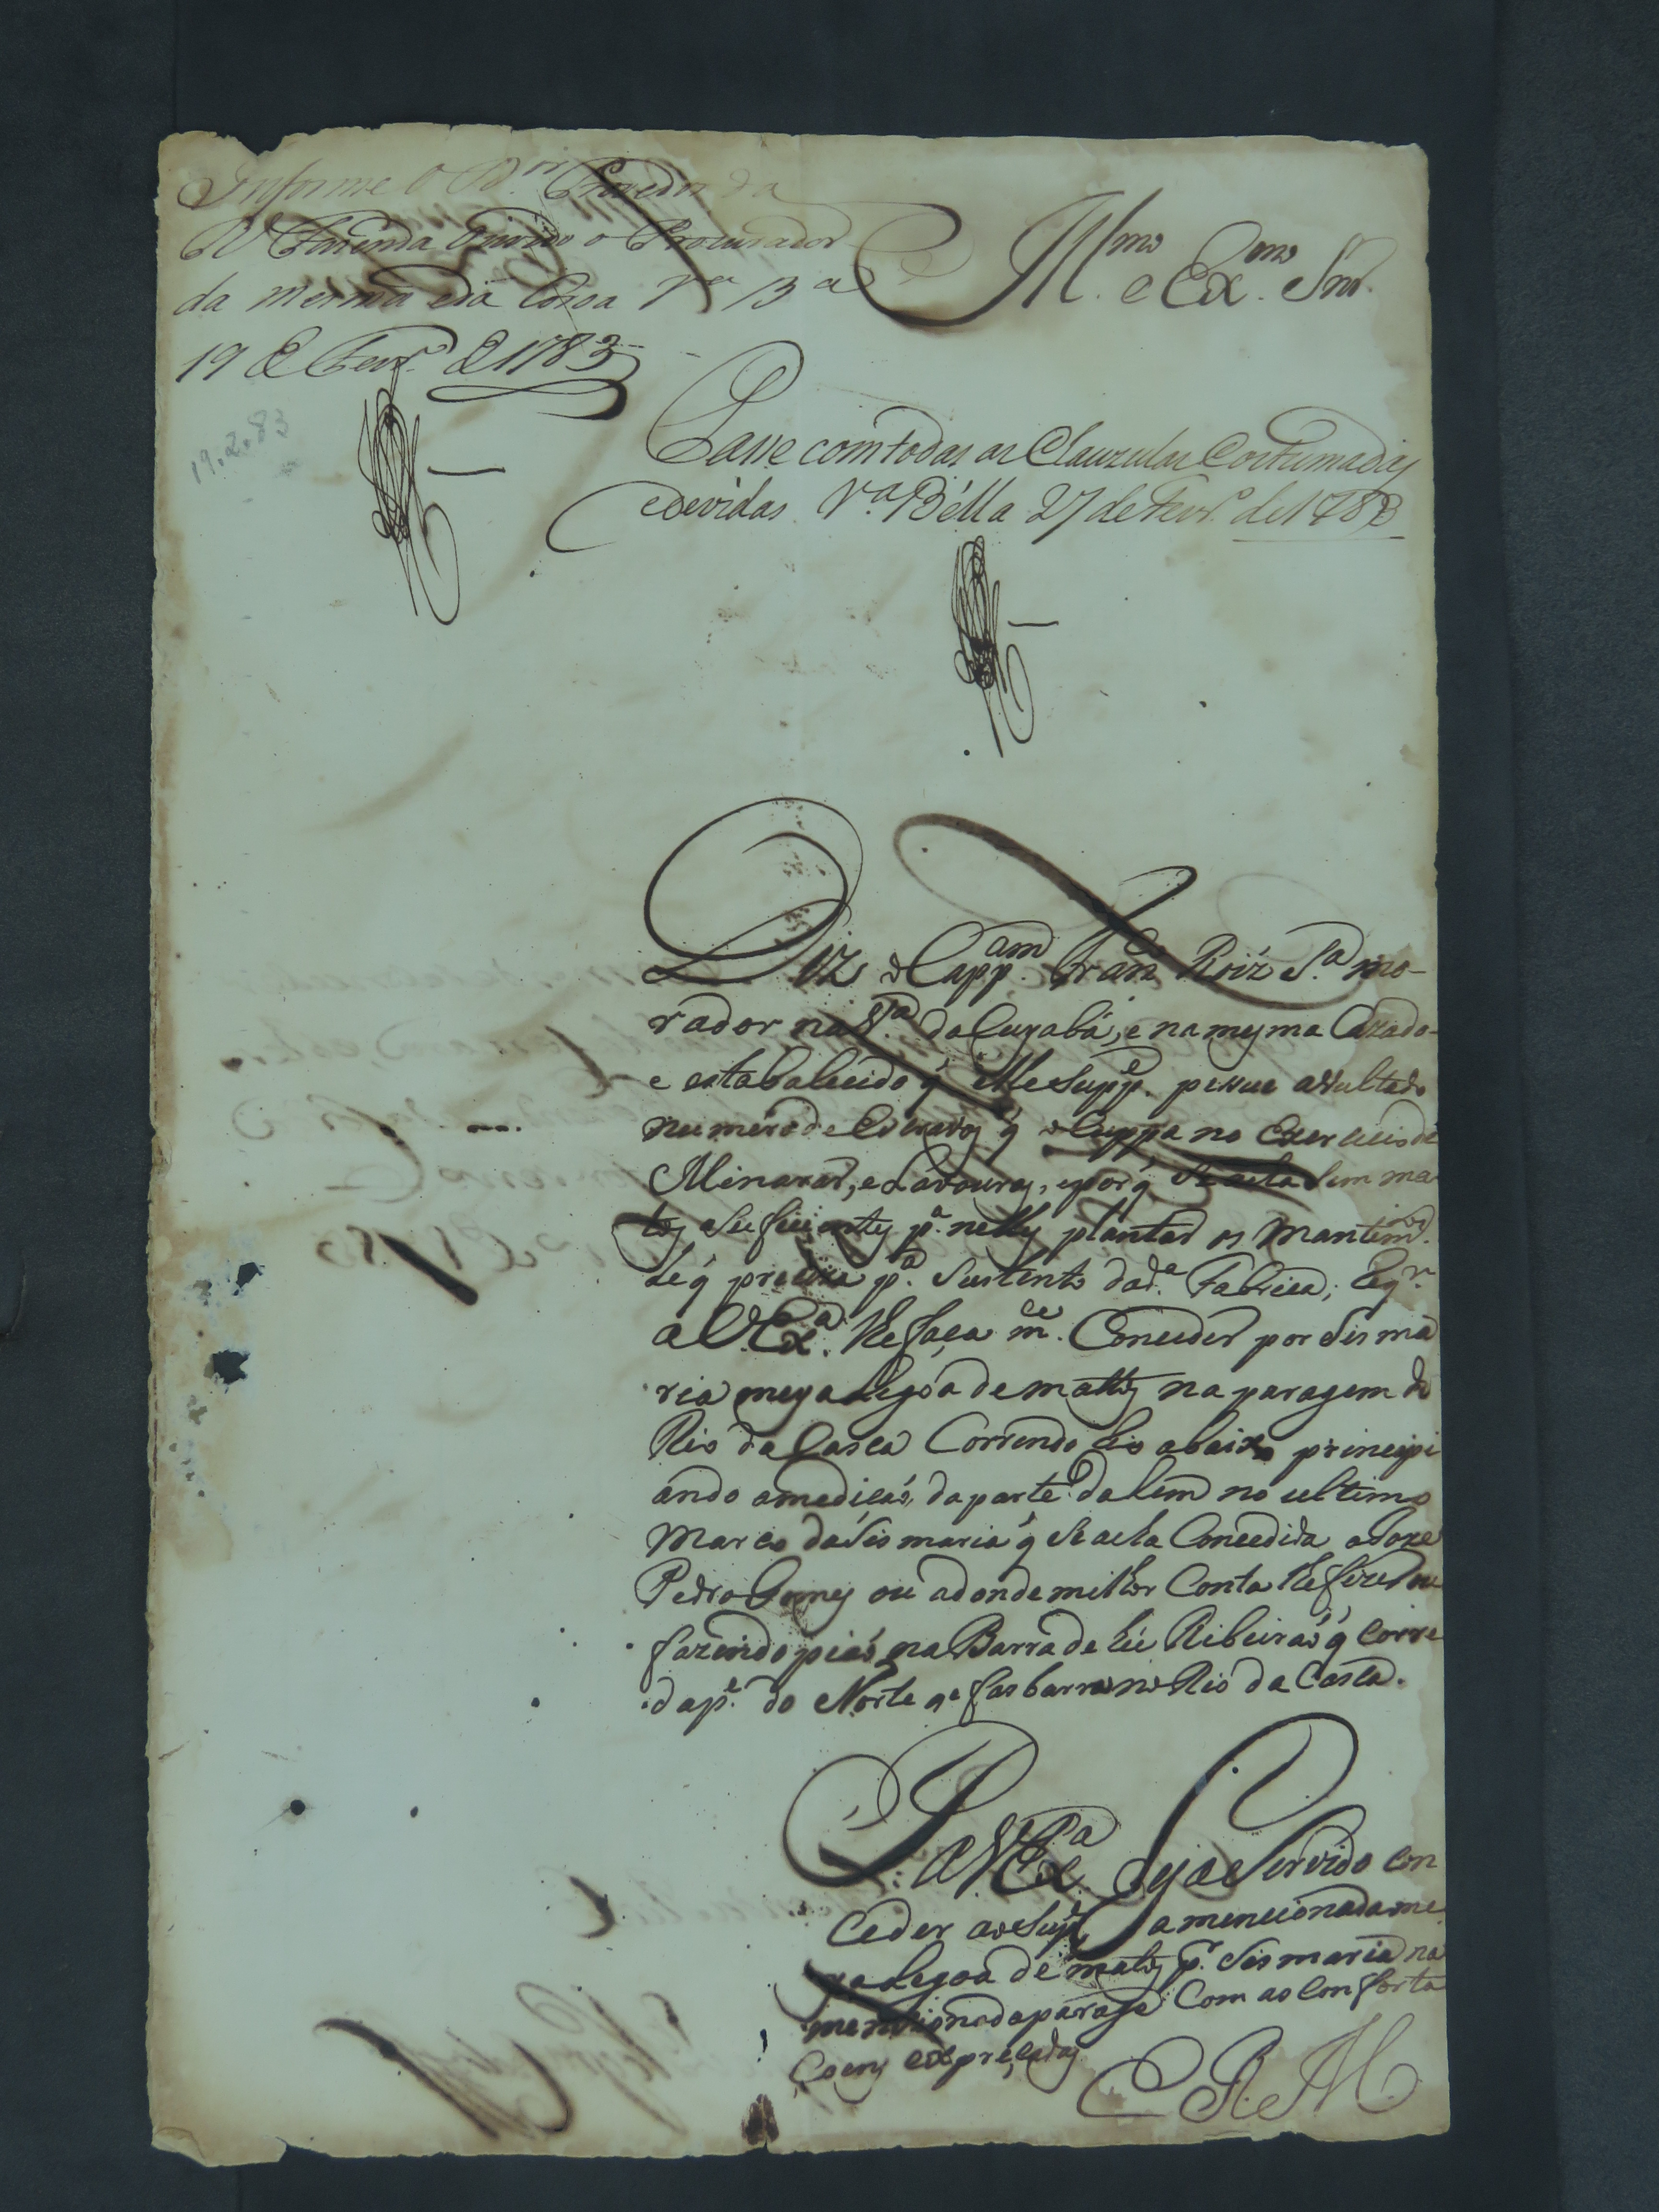 Informe o D.or Provedor da
R. Fazenda Ouvido o Procurador
da mesma e da Coroa V.a B.a
19 de Fevr.o de 1783
19.2.83
Ill.mo e Ex.mo Snr.
Passe com todas as Clauzulas Costumadas
e devidas. V.a Bélla 27 de Fevr.o de 1783
Diz o Capp.am Fran.co Roiz S.a mo-
rador na V.a do Cuyabá, e na mesma Cazado
e estabalecido q̃ elle Supp.e pessue avultado
numéro de Escravos q̃ occuppa no exercicio de
Minarar, e Lavouras, e porq̃ se acha sem ma
tos suficientes p.a nelles plantar os mantim.tos
de q̃ preciza p.a Sustento da d.a Fabrica; Eq̃r.
a V. Ex.a lhe faça m.ce Conceder por Sisma
ria meya Legoa de mattos na paragem do
Rio da Casca Correndo Rio abaixo principi
ando a mediçaó, da parte dalem no ultimo
Marco da Sismaria q̃ se acha Concedida a Joze
Pedro Gomes ou adonde milhor Conta lhe fizer ou
fazendo pieó na Barra de hú Ribeiraó q̃ corre
da p.e do Norte q̃ fas barra no Rio da Casca.
P. a V. Ex.a Seja Servido con
ceder ao Sup.e a mencionada me
ya Legoa de matos p.r Sismaria na
mencionada parage Com as Confronta
çoens expreçadas
E. R. M.